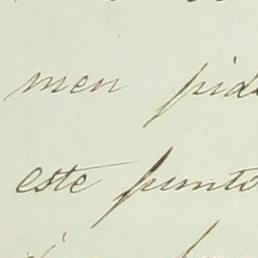 men pid
este punto